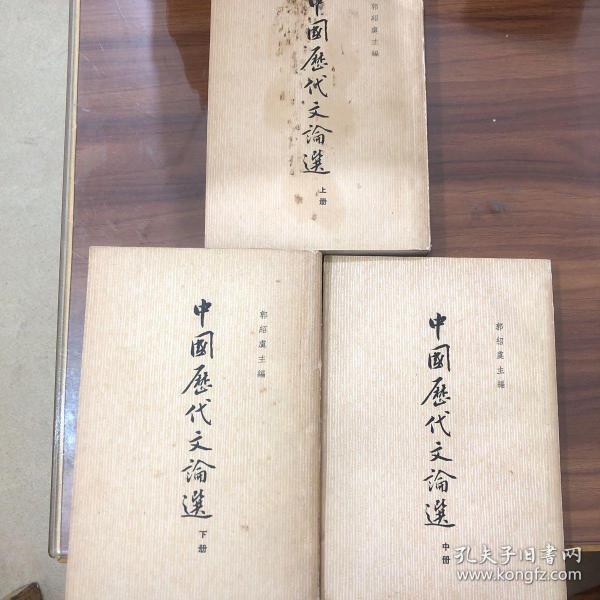 郭绍虞主编
中國歷代文論選
上册
郭绍虞主编
中國歷代文論選
下册
郭绍虞主编
中國歷代文論選
中册
孔夫子旧书网
www.kongfz.com